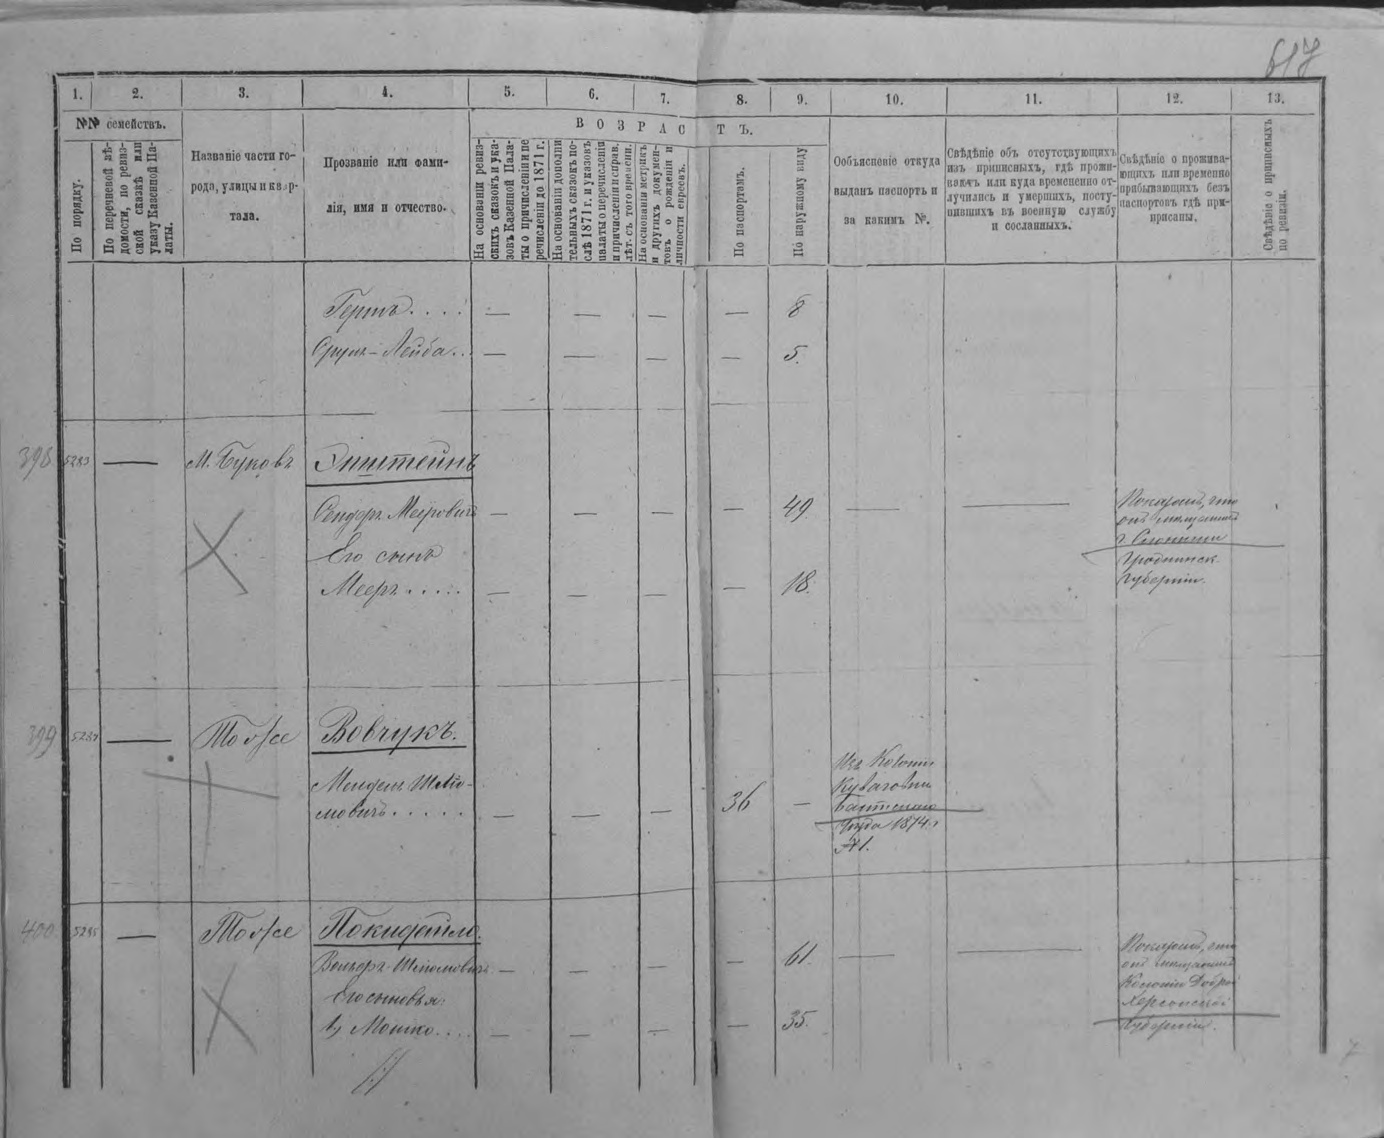 617
1. 2. 3. 4. 5. 6. 7. 8. 9. 10. 11. 12. 13.
№№ семействъ.
По порядку.
По перечневой вѣ-
домости, по ревиз-
ской сказкѣ или
указу Казенной Па-
латы.
Названіе части го-
рода, улицы и квар-
тала.
Прозваніе или фами-
лія, имя и отчество.
ВОЗРАСТЪ.
На основаніи ревиз-
скихъ сказокъ и ука-
зовъ Казенной Пала-
ты о причисленіи пе
речисленіи до 1871 г.
На основаніи дополни
тельныхъ сказокъ по-
слѣ 1871 г. и указовъ
палаты о перечисленіи
и причисленіи и справ.
лѣт. съ того времени.
На основаніи метрикъ
и другихъ докумен-
товъ о рожденіи и
личности евреевъ.
По паспортамъ.
По наружному виду
Объясненіе откуда
выданъ паспортъ и
за какимъ №.
Свѣдѣніе объ отсутствующихъ
изъ приписныхъ, гдѣ прожи-
ваютъ или куда временно от-
лучились и умершихъ, посту-
пившихъ въ военную службу
и сосланныхъ.
Свѣдѣніе о прожива-
ющихъ или временно
прибывающихъ безъ
паспортовъ гдѣ при-
приписаны.
Свѣдѣніе о приписныхъ
по ревизіи.
Герть.... — — — — 8
Сруль-Лейба... — — — — 5.
398 5283 — М. Буковъ Эпштейнъ
Сендеръ Меѣровичъ — — — — 49 — —
Его сынъ
Мееръ..... — — — — 18.
Показалъ, что
онъ мещанинъ
г. Слонима
Гродненск.
губерніи.
399 — Тоже Вовчукъ.
Мендель Шлио-
мовичъ..... — — — 36 —
Изъ Колоніи
года 1874.
№1.
400 5285 — Тоже Покидайло.
Вольфъ Шлиомовичъ — — — — 61. — —
Его сыновья
1, Мошко... — — — — 35.
Показалъ, что
онъ мещанинъ
Колоніи Доброй
Херсонской
губерніи.